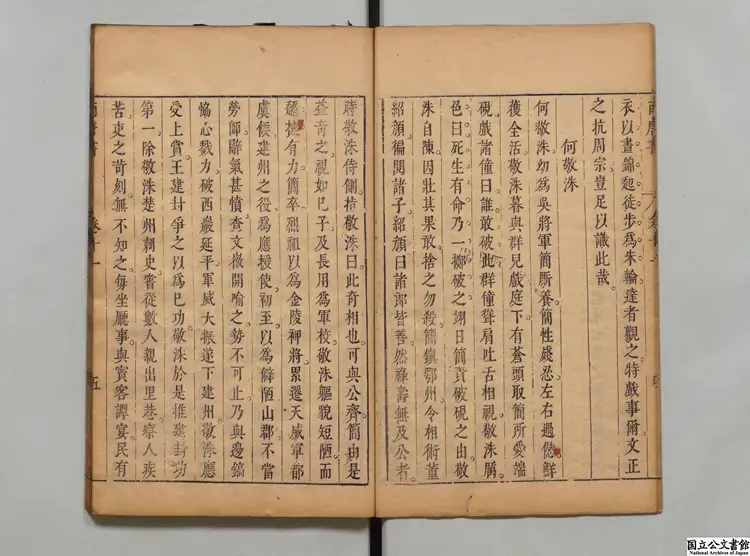 衣以晝錦起徒步為朱輪達者觀之特戲事爾文正
之抗周宗豈足以識此哉
何敬洙
何敬洙幼為吳將軍簡廝養簡性殘忍左右過愆鮮
獲全活敬洙暮與群兒戲庭下有蒼頭取簡所愛端
硯戲諸僮曰誰敢破此群僮聳肩吐舌相視敬洙厲
色曰死生有命乃一擲破之翊日簡責破硯之由敬
洙自陳因壯其果敢捨之勿殺簡鎮鄂州令相術董
紹顔徧閱諸子紹顔曰諸郎皆善然祿壽無及公者
時敬洙侍側指敬洙曰此奇相也可與公齊簡由是
益奇之視如已子及長用為軍校敬洙軀貌短陋而
有力簡卒烈祖以為金陵裨將累遷天威軍都
虞候建州之役為應援使初至以為僻陋山郡不當
勞師辭氣甚憤查文徽開喻之勢不可止乃與邊鎬
恊心戮力破西巖延平軍威大振遂下建州敬洙應
受上賞王建封爭之以為已功敬洙於是推建封功
第一除敬洙楚州刺史甞從數人親出里巷察人疾
苦吏之苛刻無不知之每坐廳事與賓客譚宴民有
南唐書
卷十一
五